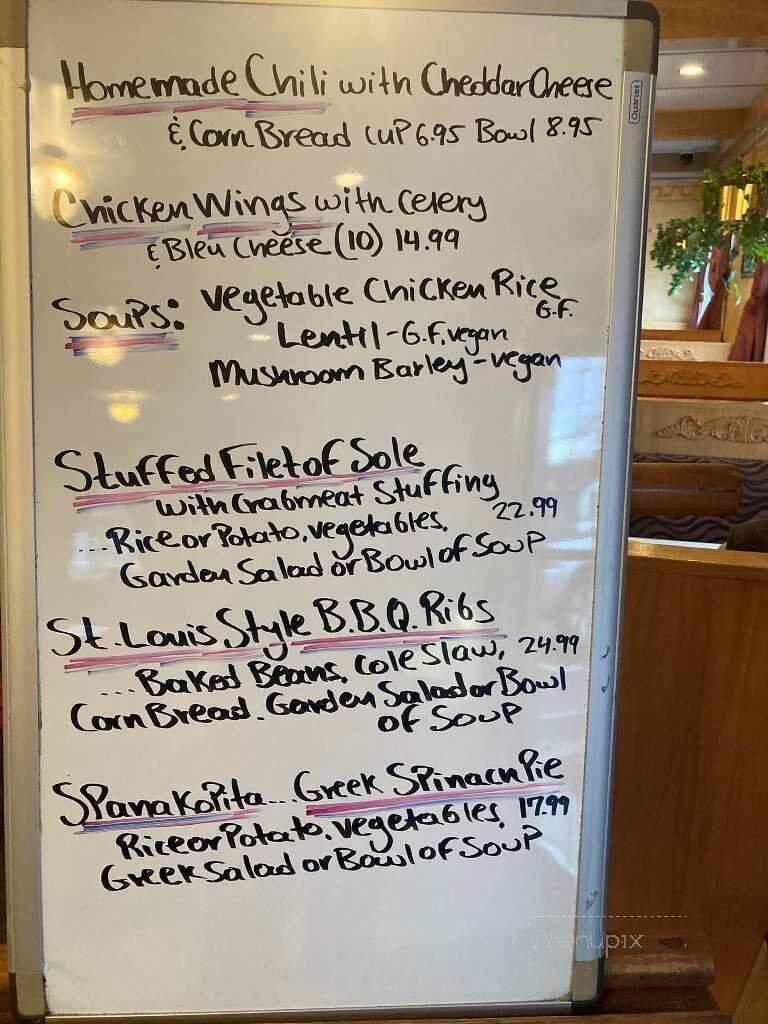 Homemade Chili with Cheddar Cheese
& Corn Bread CUP 6.95 Bowl 8.95
Chicken Wings with Celery
& Bleu Cheese (10) 14.99
Soups: Vegetable Chicken Rice
G.F.
Lentil - G.F. vegan
Mushroom Barley - vegan
Stuffed Filet of Sole
with Crabmeat Stuffing
22.99
...Rice or Potato, vegetables,
Garden Salad or Bowl of Soup
St. Louis Style B.B.Q. Ribs
24.99
...Baked Beans, Cole Slaw,
Corn Bread. Garden Salad or Bowl
of Soup
Spanakopita... Greek Spinach Pie
Rice or Potato, vegetables, 17.99
Greek Salad or Bowl of Soup
Quartet
menupix